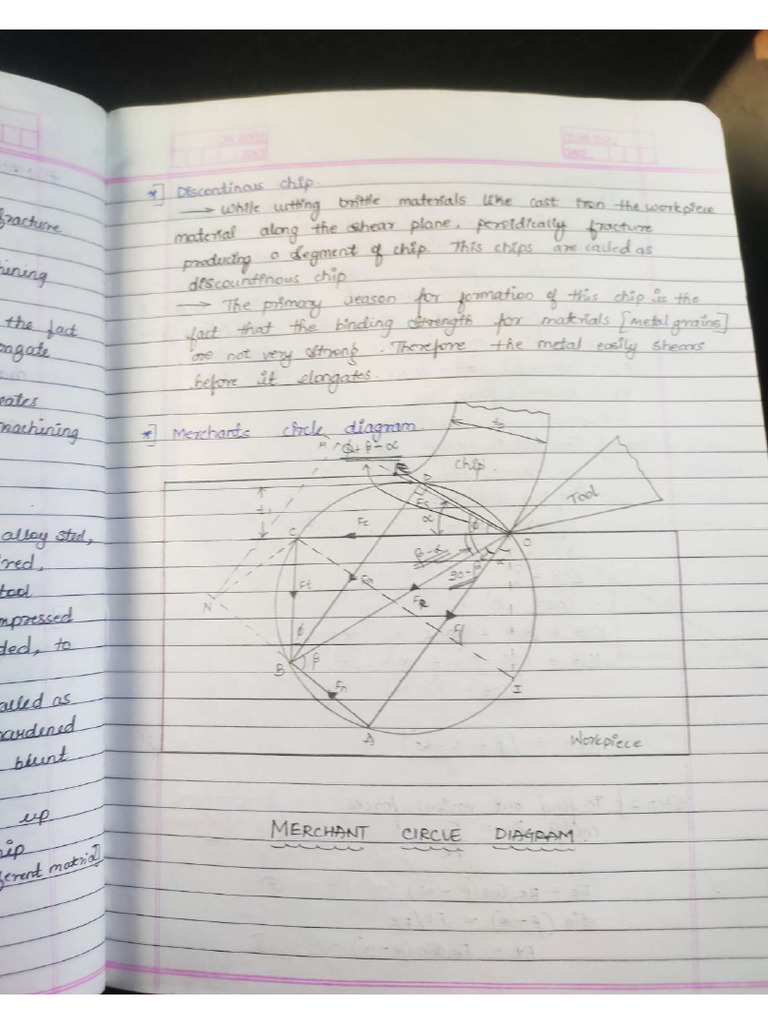 fracture
hining
the fact
pagate
eates
machining
alloy steel,
ired,
tool
mpressed
ded, to
alled as
hardened
blunt
up
hip
ferent material]
*] Discontinous chip.
→ While cutting brittle materials like cast iron the workpiece
material along the shear plane, peroidically fracture
producing a segment of chip. This chips are called as
discountinous chip
→ The primary reason for formation of this chip is the
fact that the binding strength for materials [metal grains]
are not very strong. Therefore the metal easily shears
before it elongates.
*] Merchants circle diagram
M
ϕ+β-α
t2
chip.
Tool
D
t1
Fs
α
ϕ
C
Fc
O
β-α
90-
Ft
N
FR
Ff
ϕ
B
β
Fn
I
A
Workpiece
MERCHANT CIRCLE DIAGRAM.